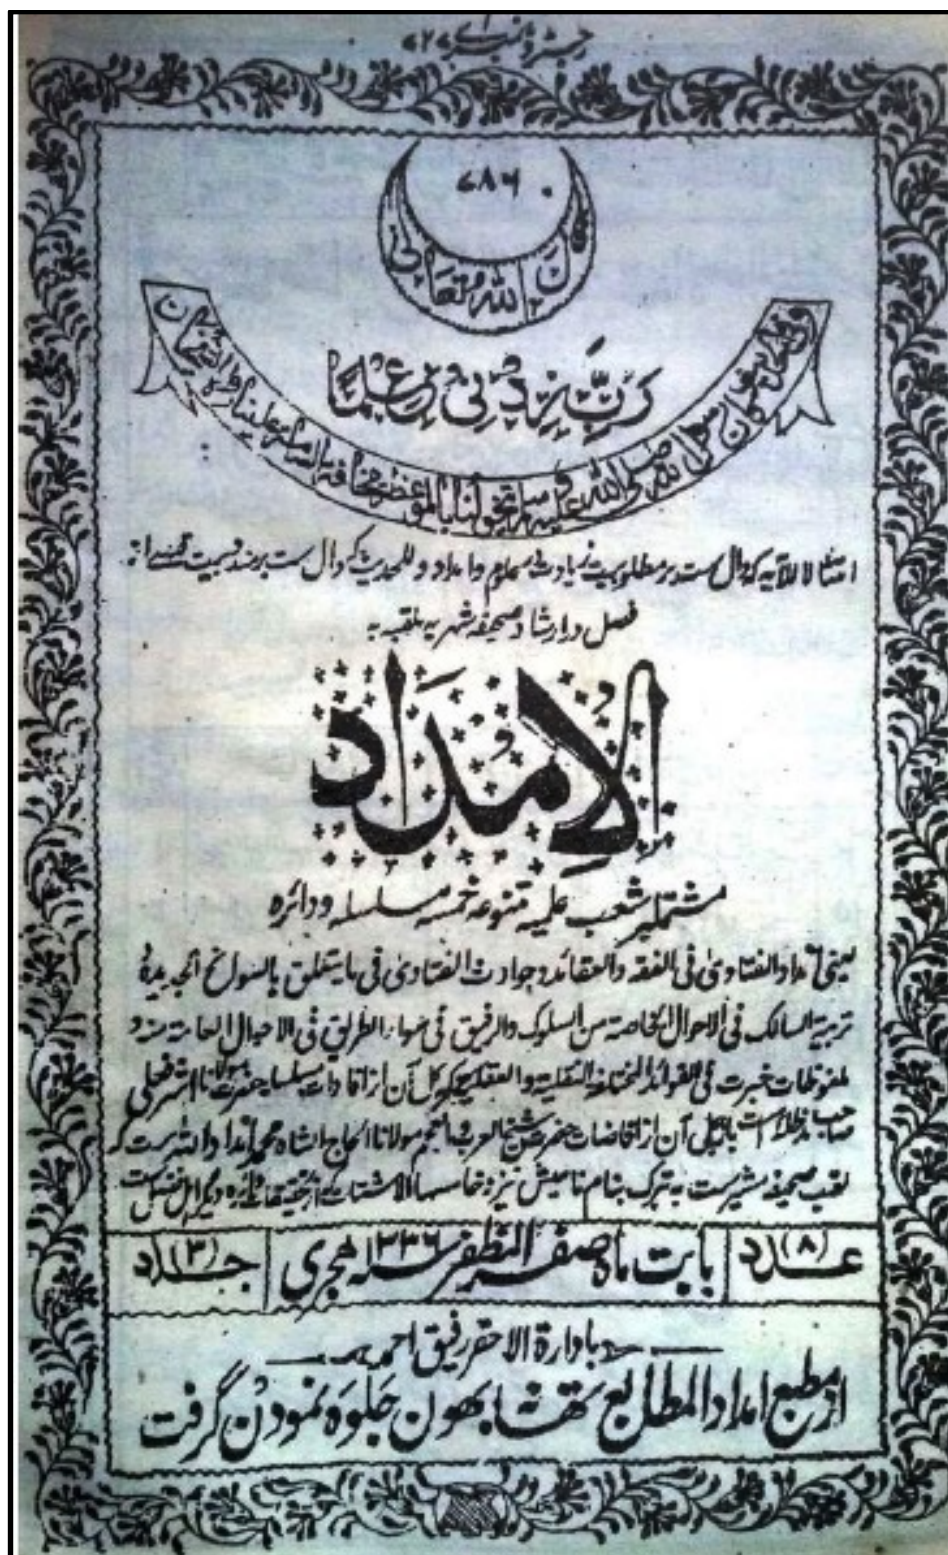 ۷۸۶
قال الله تعالى
رَبِّ زِدْنِي عِلْمًا
كان رسول الله صلى الله عليه وسلم يتخولنا بالموعظة مخافة السآمة علينا
امتثالا للآیه که دال ست بر مطلوبیت زیادت علم و امداد و للحدیث که دال ست بر
فصل و ارشاد صحیفه شهریه ملقب به
الامداد
مشتملبر شعب علمیه متنوعه خمسه مسلسله و دائره
یعنی امداد الفتاوی فی الفقه والعقائد و حوادث الفتاوی فی ما یتعلق بالسوانح الجدیدة
تربیة السالک فی الاحوال الخاصه من السلوک والرفیق فی سواء الطریق فی الاحوال العامة
ملفوظات خبرت فی الفوائد المختلفة النقلیة والعقلیة که کل آن از افادات سلسله حضرت مولانا اشرفعلی
صاحب مدظله است آن از افاضات حضرت شیخ العرب والعجم مولانا الحاج الشاه محمد امداد الله ست که
لقب صحیفه مشیرست به تبرک بنام نامیش نیز
عدد (۸)
بابت ماه صفر المظفر سنه ۱۳۳۶ هجری
جلد (۳)
بادارة الاحقر رفیق احمد
از مطبع امداد المطابع تهانه بهون جلوه نمودن گرفت